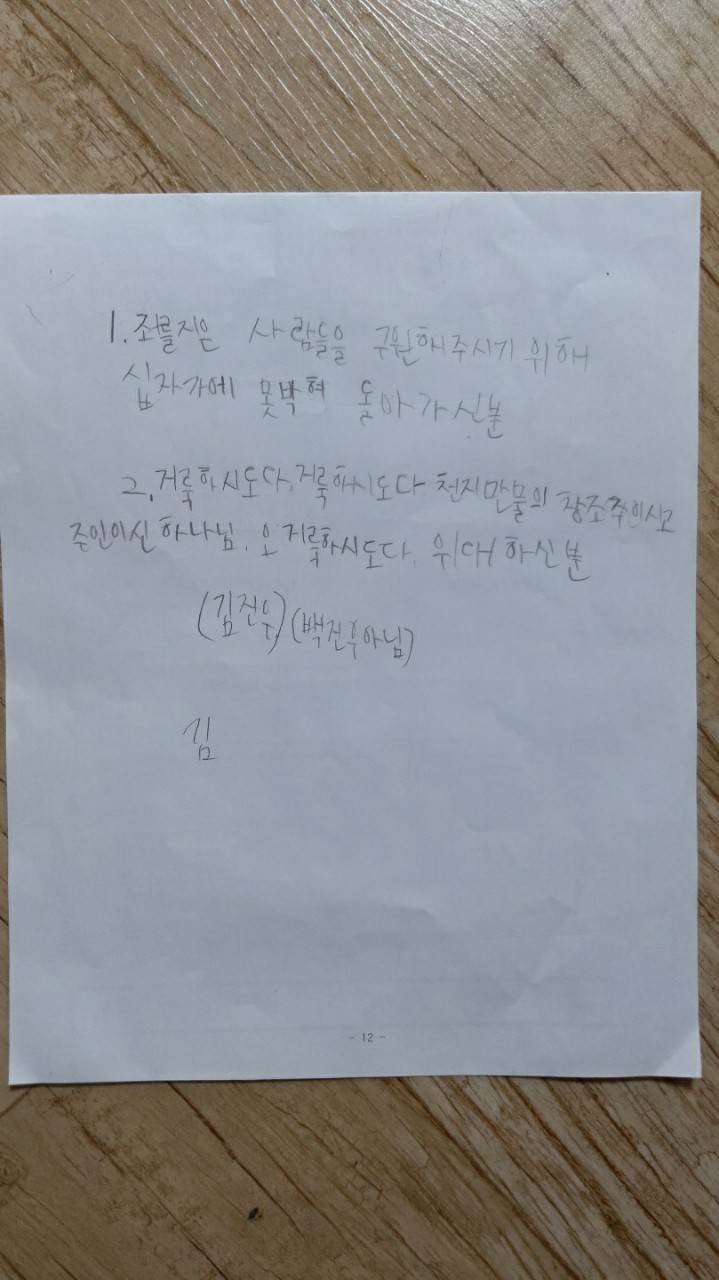 1. 죄를지은 사람들을 구원해주시기 위해
십자가에 못박혀 돌아가신분
2. 거룩하시도다. 거룩하시도다 천지만물의 창조주이시고
주인이신 하나님. 오 거룩하시도다. 위대하신분
(김진우) (백진우아님)
김
- 12 -